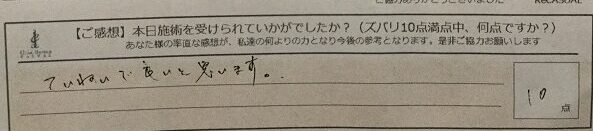 【ご感想】本日施術を受けられていかがでしたか？（ズバリ10点満点中、何点ですか？）
あなた様の率直な感想が、私達の何よりの力となり今後の参考となります。是非ご協力お願いします
ていねいで良いと思います。
10点